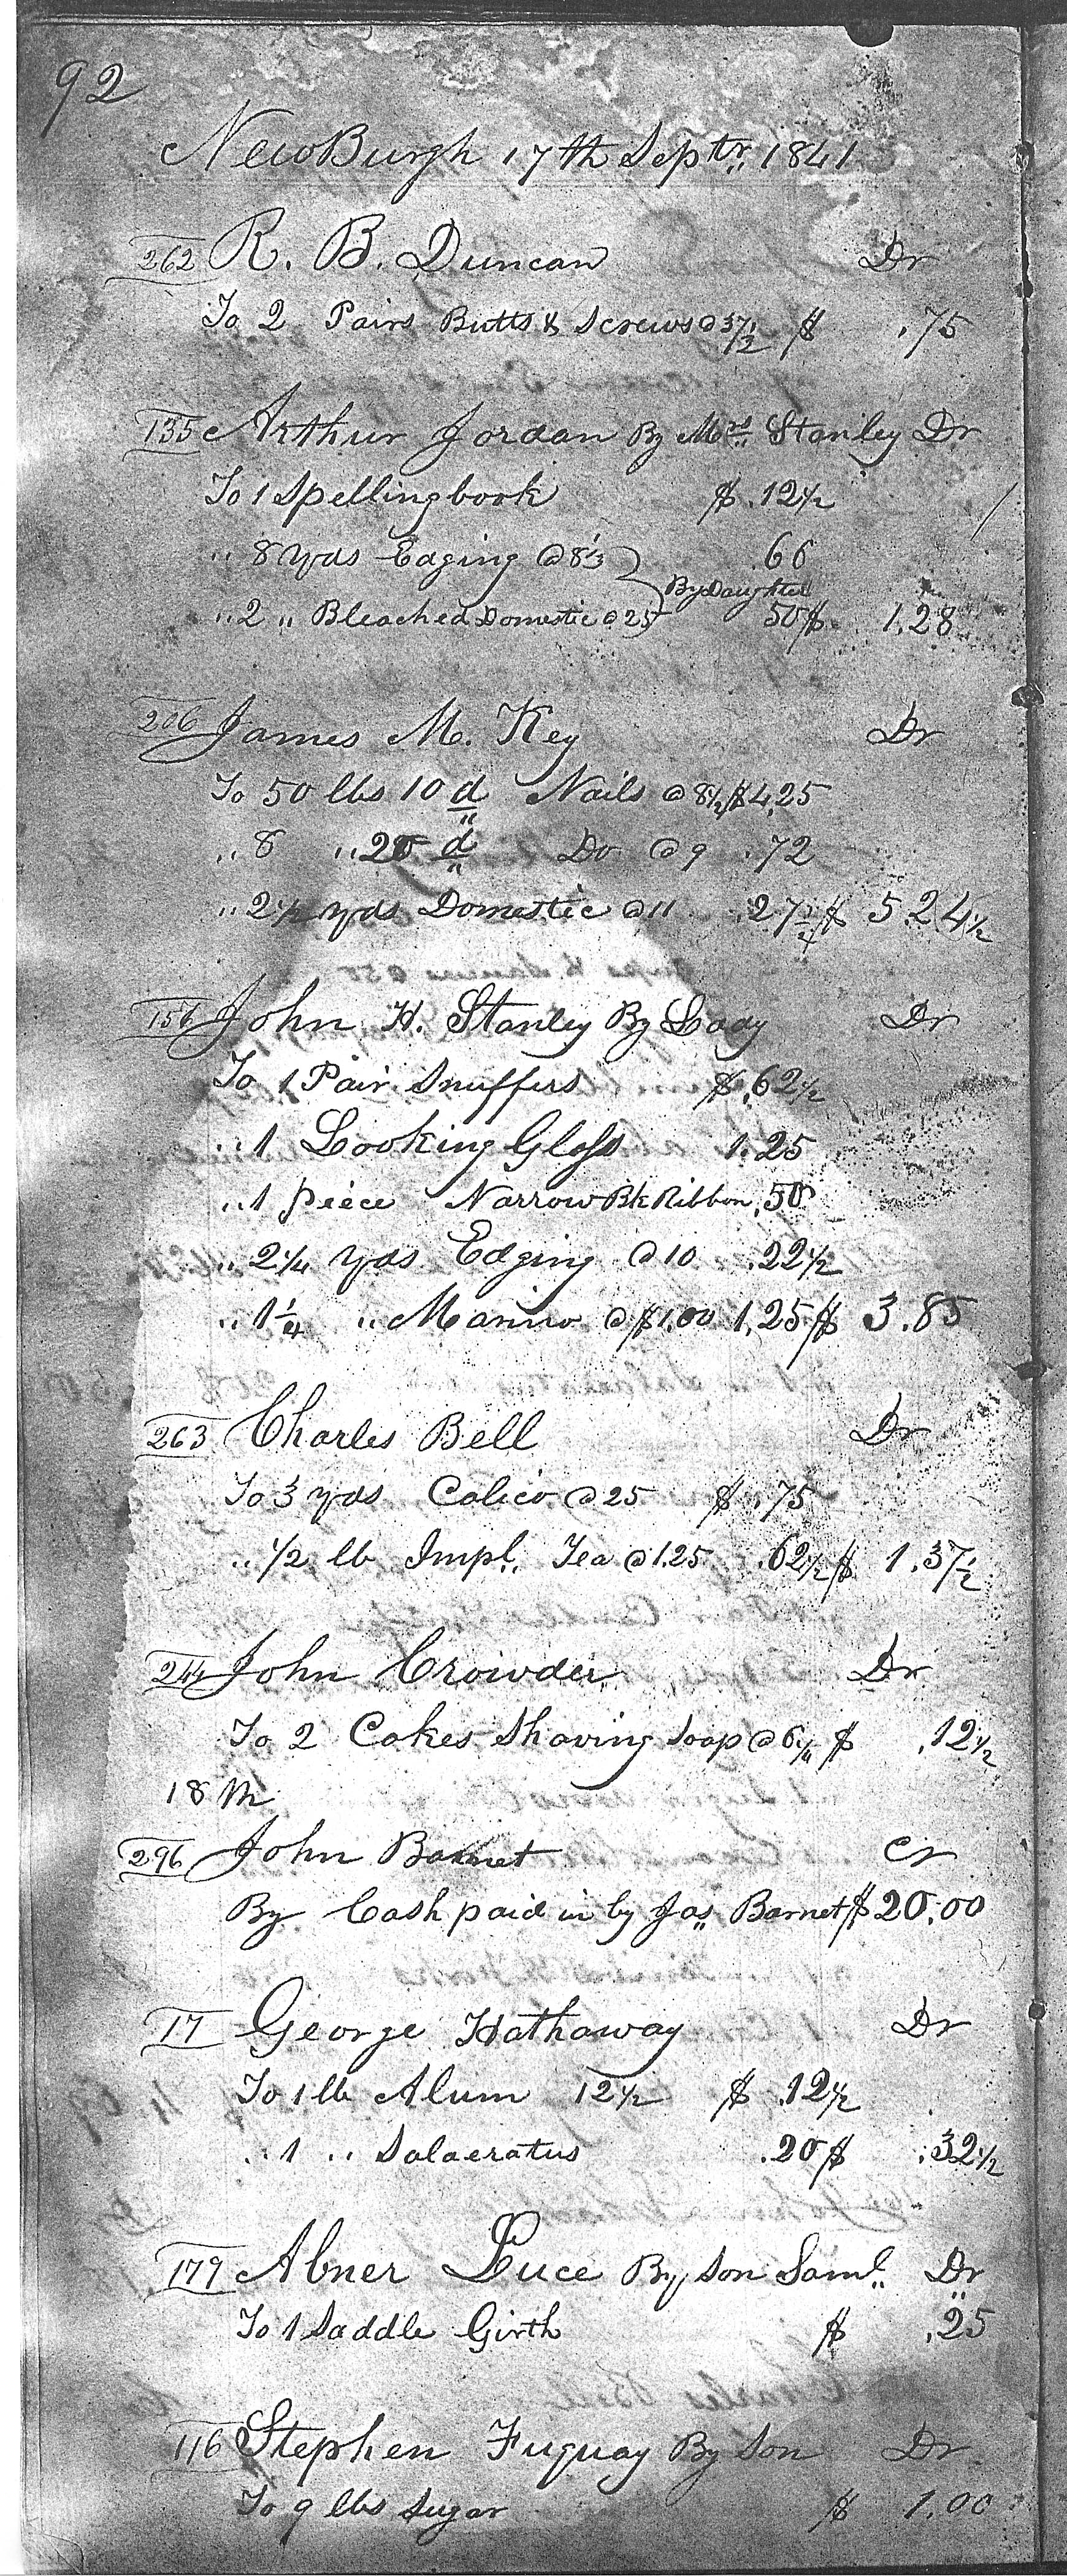 92
NewBurgh 17th Septr. 1841
262 R. B. Duncan Dr
To 2 Pairs Butts & Screws @ 37 1/2 $ .75
135 Arthur Jordan By Mrs Stanley Dr
To 1 Spellingbook $ .12 1/2
" 8 yds Edging @ 8 1/3 .66
By Daughter
" 2 " Bleached Domestic @ 25 50 $ 1.28
206 James M. Key Dr
To 50 lbs 10 d Nails @ 8 1/2 $ 4,25
" 8 " 20 d Do @ 9 .72
" 2 1/2 yds Domestic @ 11 .27 1/4 $ 5.24 1/2
156 John H. Stanley By Lady Dr
To 1 Pair Snuffers $ .62 1/2
" 1 Looking Glass 1.25
" 1 piece Narrow Bk Ribbon .50
" 2 1/4 yds Edging @ 10 .22 1/2
" 1 1/4 " Marino @ $1.00 1,25 $ 3.85
263 Charles Bell Dr
To 3 yds Calico @ 25 $ .75
" 1/2 lb Impl. Tea @ 1.25 .62 1/2 $ 1.37 1/2
244 John Crowder Dr
To 2 Cakes Shaving Soap @ 6 1/4 $ .12 1/2
18 th
296 John Barnet Cr
By Cash paid in by Jas Barnet $ 20.00
17 George Hathaway Dr
To 1 lb Alum 12 1/2 $ .12 1/2
" 1 " Salaeratus .20 $ .32 1/2
179 Abner Luce By Son Saml. Dr
To 1 Saddle Girth $ .25
116 Stephen Fuquay By Son Dr
To 9 lbs Sugar $ 1.00